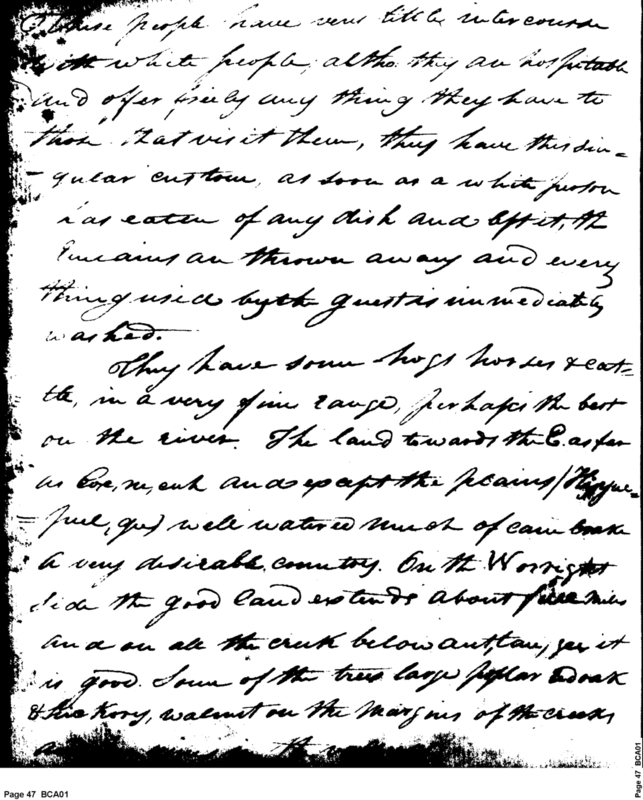 These people have very little intercourse
with white people, altho. they are hospitable
and offer freely any thing they have to
those that visit them, they have this sin-
-gular custom, as soon as a white person
has eaten of any dish and left it, the
remains are thrown away and every
thing used by the guest is immediately
washed.
They have some hogs horses & cat-
tle, in a very fine range, perhaps the best
on the river. The land towards the East as far
as
and except the plains
well watered much of cane brake
a very desirable country. On the W or right
side the good land extends about five miles
and on all the creek below it
is good. Some of the trees large poplar oak
& hickory, walnut on the margins of the creeks
in the
Page 47 BCA01
Page 47 BCA01